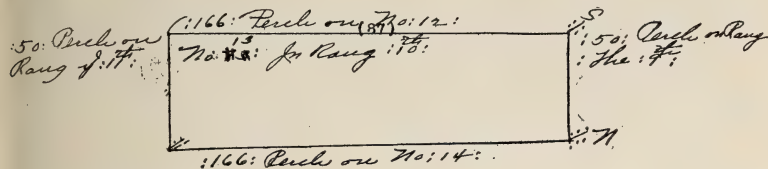 :166: Perch on No:12:
(87)
S
:50: Perch on
Rang ye:11th:
No: 13: In Rang :10th:
:50: Perch on Rang
: The :9th:
N
:166: Perch on No:14: